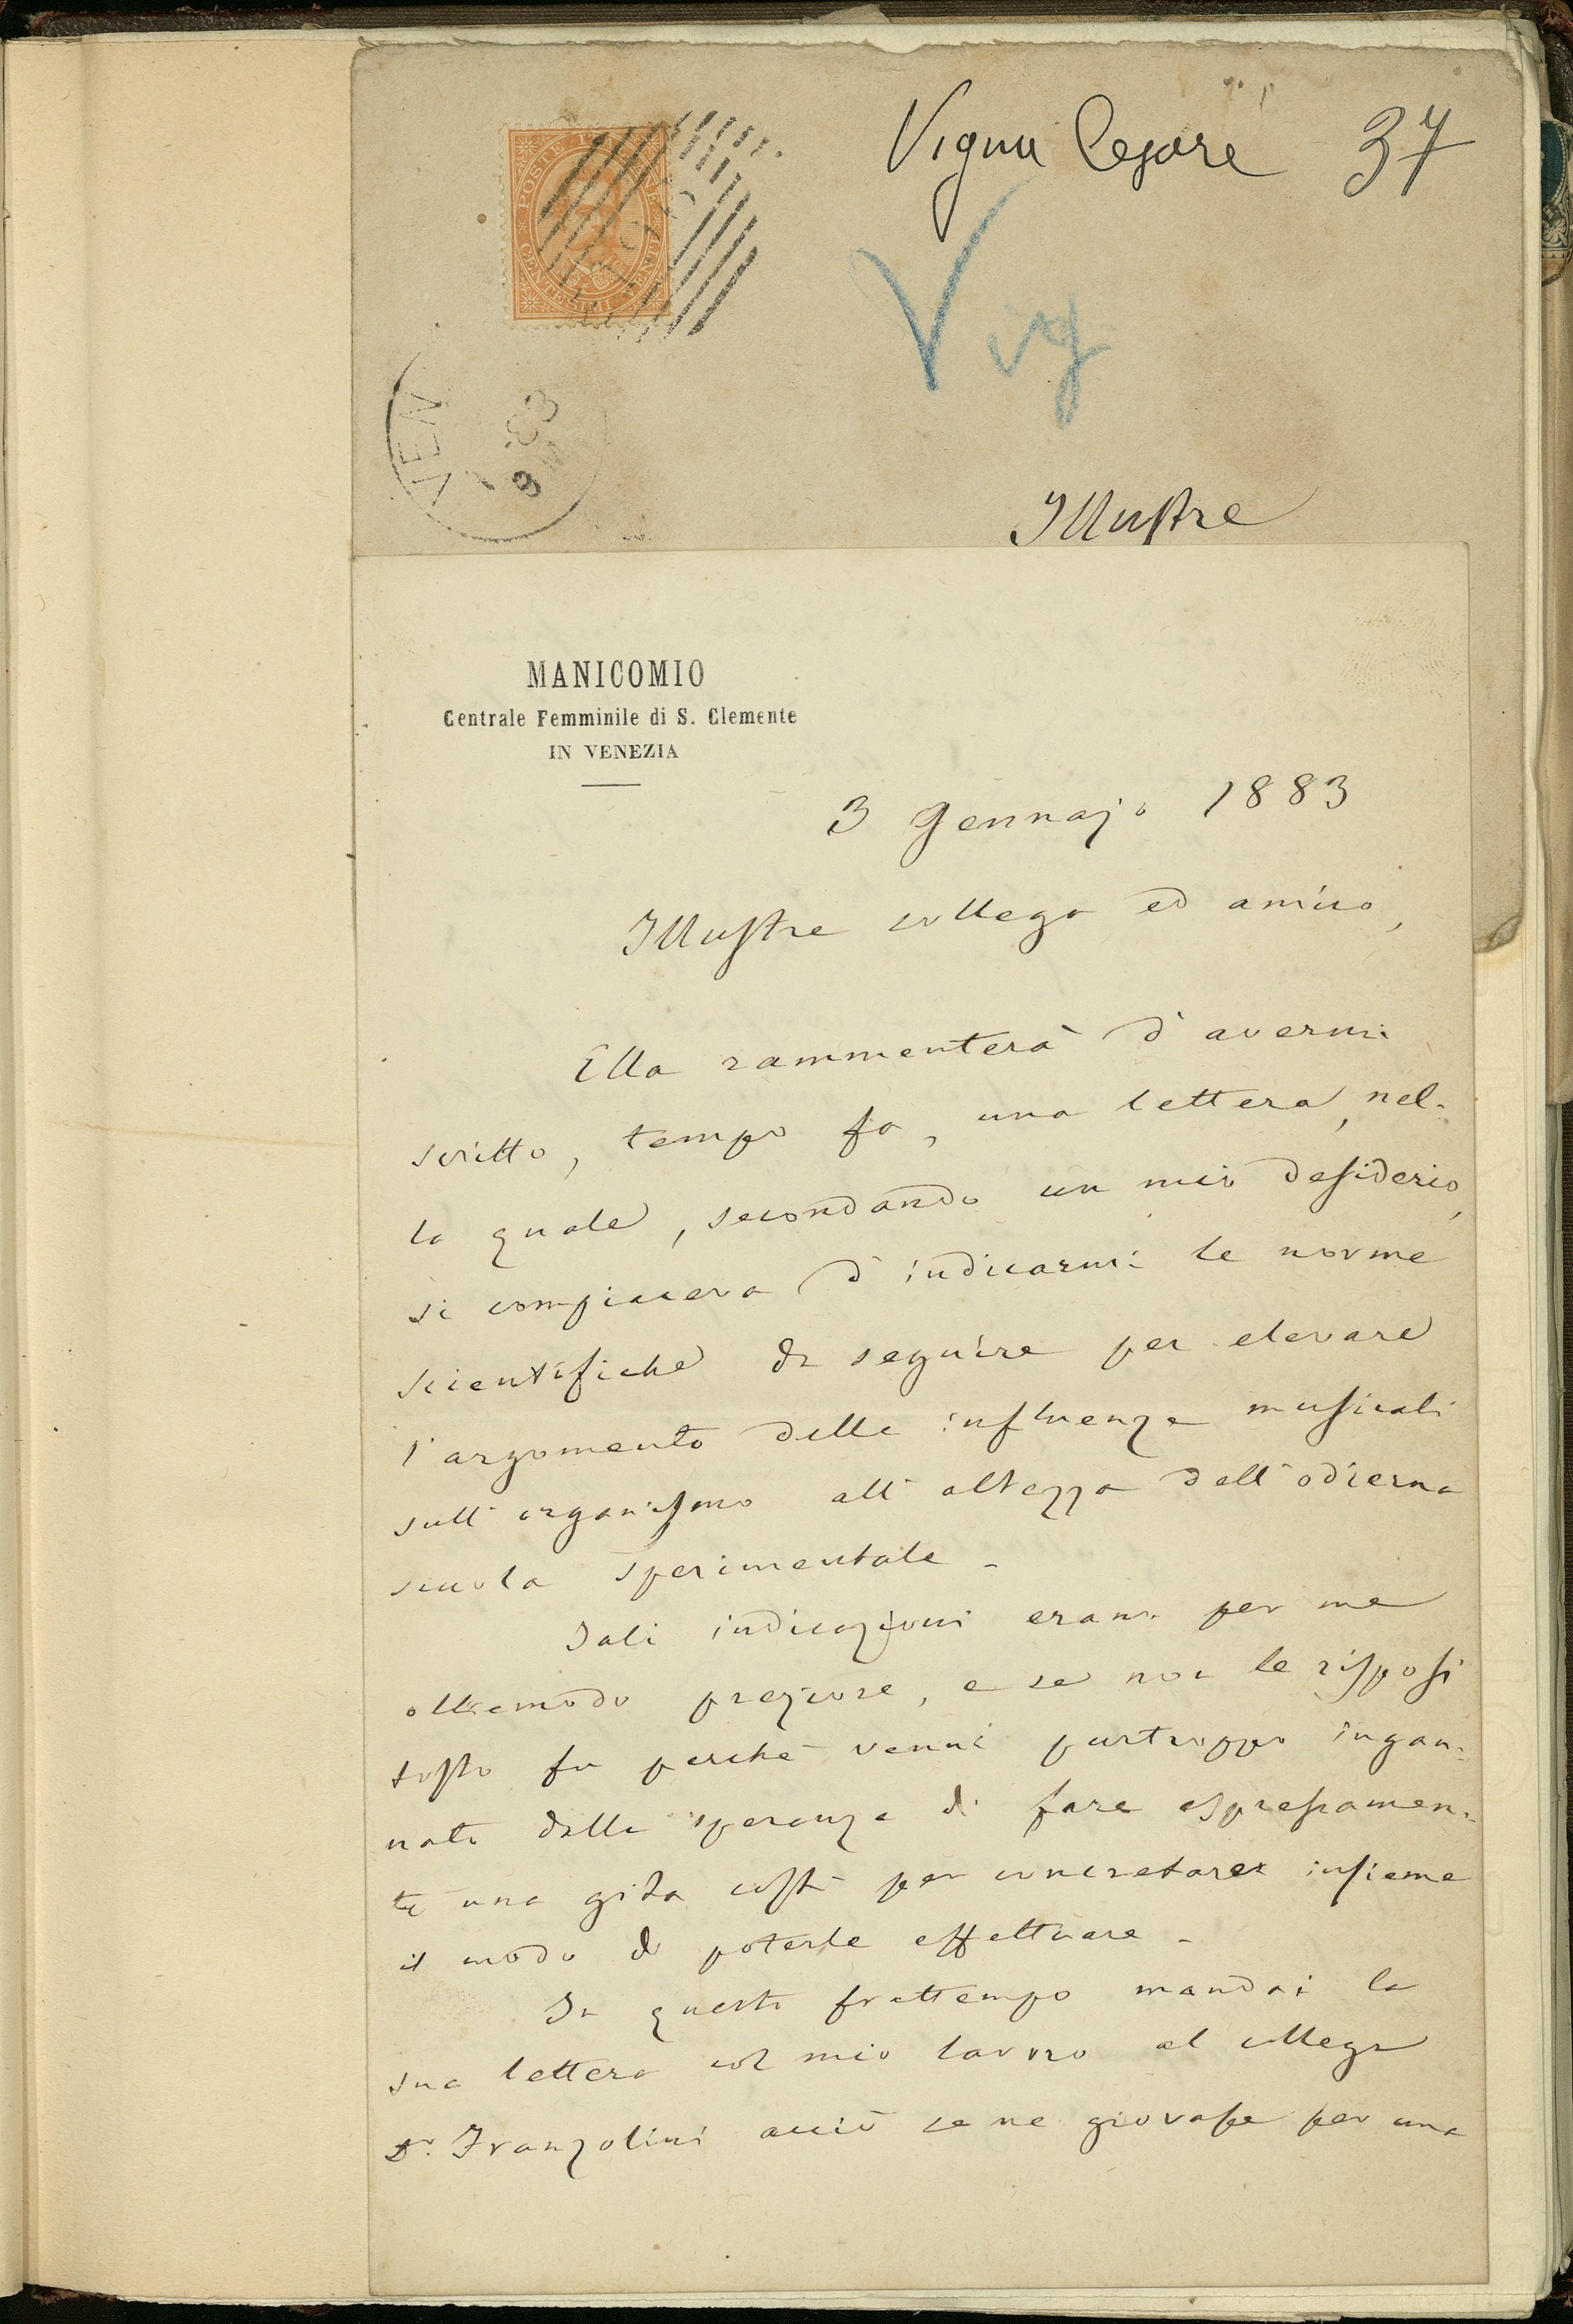 Vigna Cesare 37
POSTE ITALIANE
CENTESIMI VENTI
Vig
VEN
83
3
Illustre
MANICOMIO
Centrale Femminile di S. Clemente
IN VENEZIA
3 Gennajo 1883
Illustre collega ed amico,
Ella rammenterà d'avermi
scritto, tempo fa, una lettera, nel-
la quale, secondando un mio desiderio,
si compiaceva d'indicarmi le norme
scientifiche da seguire per elevare
l'argomento delle influenze musicali
sull'organismo all'altezza dell'odierna
scuola sperimentale -
Tali indicazioni erano per me
oltremodo preziose, e se non le risposi
tosto fu perchè venni purtroppo ingan-
nato dalla speranza di fare espressamen-
te una gita costì per concretare insieme
il modo di poterle effettuare -
In questo frattempo mandai la
sua lettera col mio lavoro al collega
Dr. Franzolini acciò se ne giovasse per una